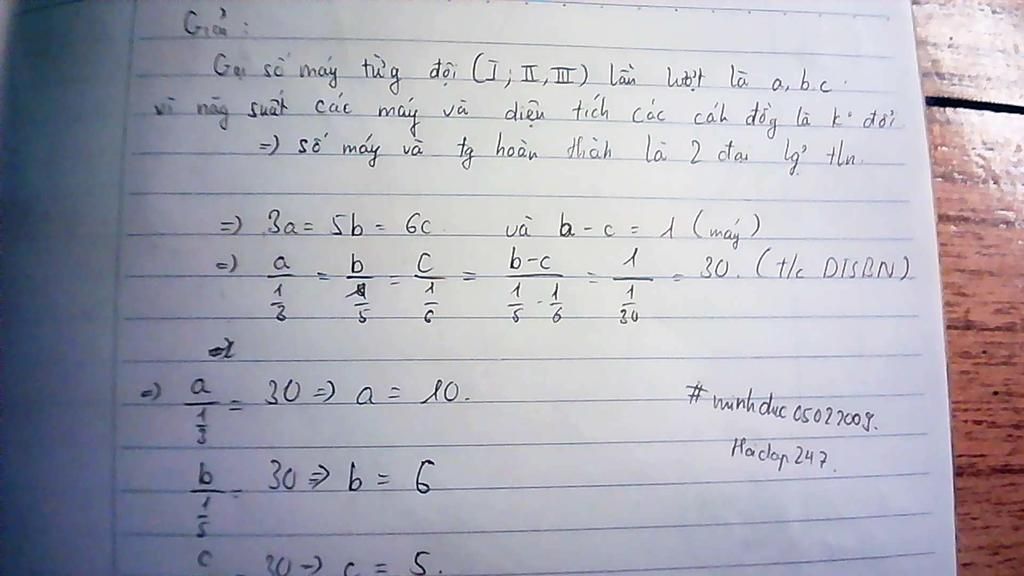 Giải:
Gọi số máy từg đội (I, II, III) lần lượt là a, b. c.
vì năg suất các máy và diện tích các cáh đồg là k° đổi
=) số máy và tg hoàn thàh là 2 đại lg² tln.
=) 3a = 5b = 6c và b - c = 1 (máy)
=) a/(1/3) = b/(1/5) = c/(1/6) = (b-c)/(1/5 - 1/6) = 1/(1/30) = 30. (t/c DTSBN)
=) a/(1/3) = 30 =) a = 10.
#minhduc05022009.
b/(1/5) = 30 => b = 6
Hoidap247.
c 30 -> c = 5.